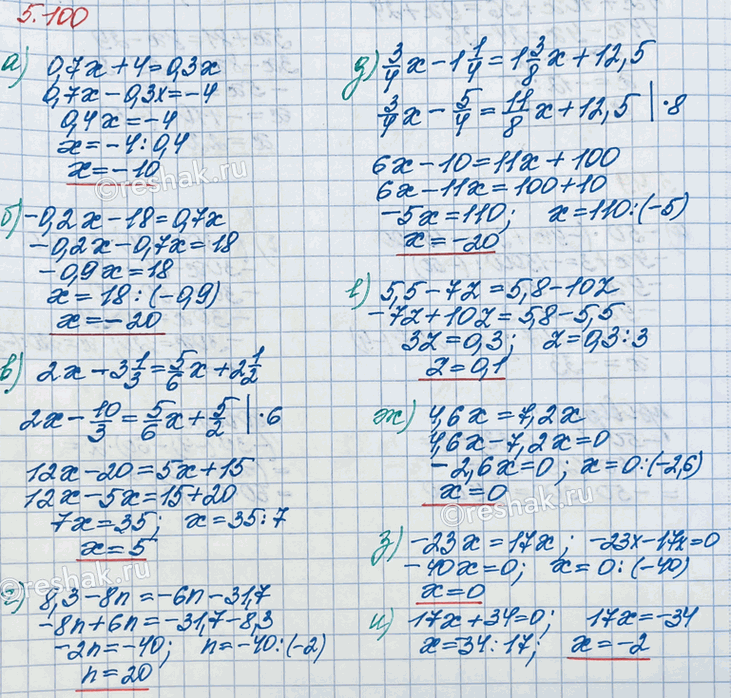 5.100
а) 0,7x + 4 = 0,3x
0,7x - 0,3x = -4
0,4x = -4
x = -4 : 0,4
x = -10
б) -0,2x - 18 = 0,7x
-0,2x - 0,7x = 18
-0,9x = 18
x = 18 : (-0,9)
x = -20
в) 2x - 3 1/3 = 5/6 x + 2 1/2
2x - 10/3 = 5/6 x + 5/2 | · 6
12x - 20 = 5x + 15
12x - 5x = 15 + 20
7x = 35; x = 35 : 7
x = 5
г) 8,3 - 8n = -6n - 31,7
-8n + 6n = -31,7 - 8,3
-2n = -40; n = -40 : (-2)
n = 20
д) 3/4 x - 1 1/4 = 1 3/8 x + 12,5
3/4 x - 5/4 = 11/8 x + 12,5 | · 8
6x - 10 = 11x + 100
6x - 11x = 100 + 10
-5x = 110; x = 110 : (-5)
x = -20
е) 5,5 - 7z = 5,8 - 10z
-7z + 10z = 5,8 - 5,5
3z = 0,3; z = 0,3 : 3
z = 0,1
ж) 4,6x = 7,2x
4,6x - 7,2x = 0
-2,6x = 0; x = 0 : (-2,6)
x = 0
з) -23x = 17x; -23x - 17x = 0
-40x = 0; x = 0 : (-40)
x = 0
и) 17x + 34 = 0; 17x = -34
x = -34 : 17; x = -2
© reshak.ru
© reshak.ru